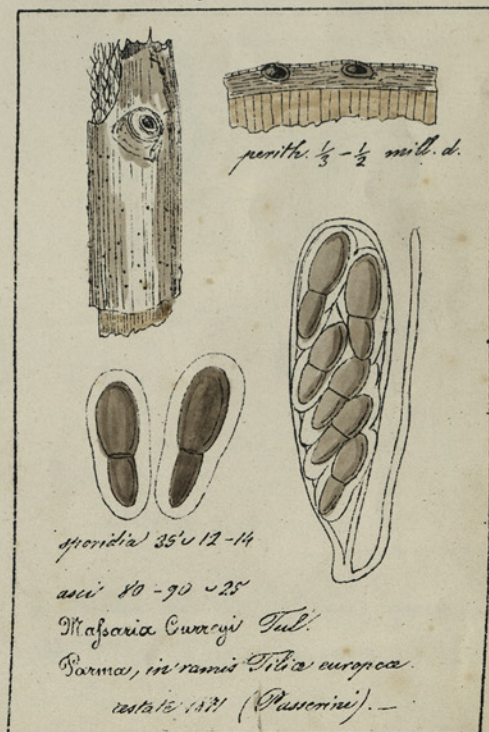 perith. 1/3 - 1/2 mill. d.
sporidia 35 ⌣ 12-14
asci 80-90 ⌣ 25
Maſsaria Curreyi Tul.
Parma, in ramis Tiliæ europeæ.
æstate 1871 (Passerini). —